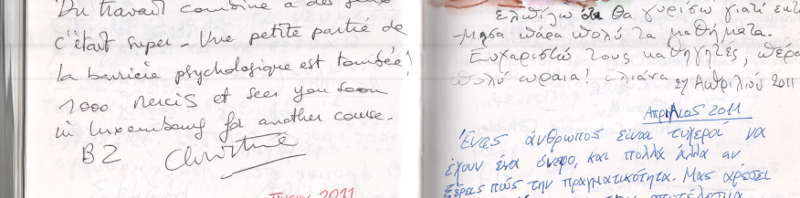 Du travail combiné à des jeux
c'était super. Une petite partie de
la barrière psychologique est tombée!
1000 mercis et see you soon
in Luxembourg for another course.
BZ Christine
Juin 2011
Ελπίζω ότι θα γυρίσω γιατί
πάρα πολύ τα μαθήματα.
Ευχαριστώ τους καθηγητές,
πολύ ωραία! Ελιάνα 27 Απριλίου 2011
Απρίλιος 2011
Ένας άνθρωπος είναι τυχεροί να
έχουν ένα όνειρο, και πολλά άλλα αν
ξέρεις πώς την πραγματικότητα. Μας αρέσει